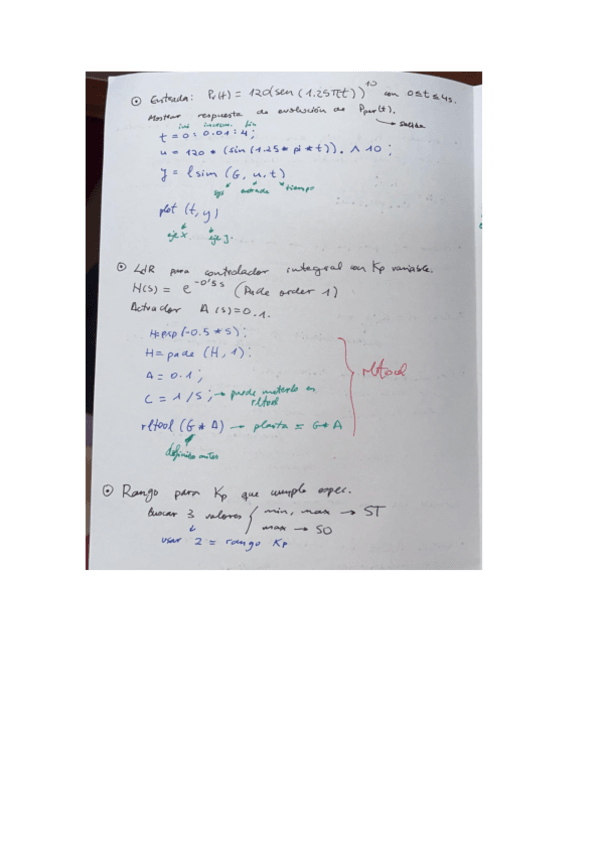 ⊙ Entrada: Pv(t) = 120(sen(1.25πt))^10 con 0≤t≤4s.
Mostrar respuesta de evolución de Ppar(t).
→ salida
ini increm. fin
t = 0 : 0.01 : 4;
u = 120 * (sin(1.25 * pi * t)).^10;
y = lsim (G, u, t)
sys entrada tiempo
plot (t, y)
eje x eje y.
⊙ LdR para controlador integral con Kp variable.
H(s) = e^-0'5s (Pade order 1)
Actuador A(s)=0.1.
H=exp(-0.5*s);
H=pade (H, 1);
A = 0.1;
C = 1/s; → puede meterlo en
rltool
rltool (G * A) → planta = G*A
definido antes
rltool
⊙ Rango para Kp que cumpla espec.
Buscar 3 valores { min, max → ST
max → SO
usar 2 = rango Kp